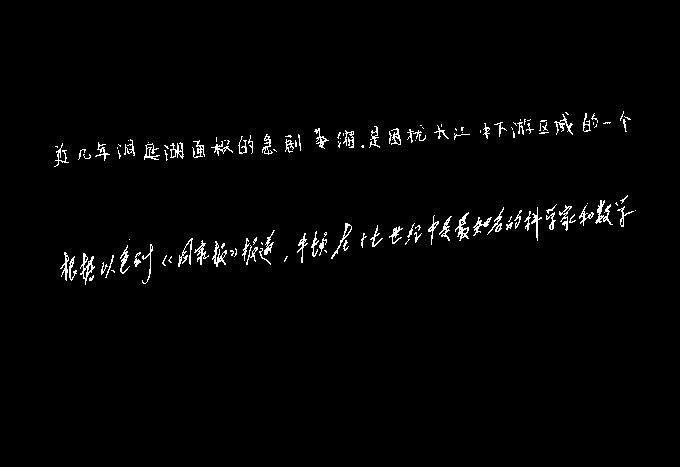 近几年洞庭湖面积的急剧萎缩.是困扰长江中下游区域的一个
根据以色列《国土报》报道,牛顿在十七世纪中是最知名的科学家和数学